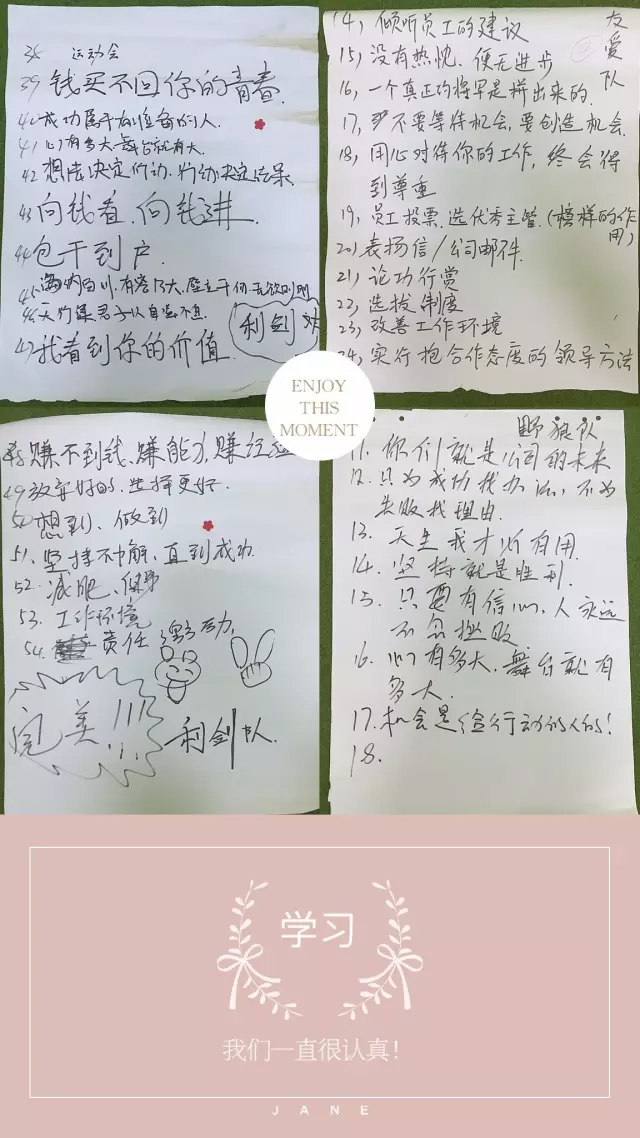 38 运动会
39 钱买不回你的青春.
40 成功属于有准备的人.
41 心有多大舞台就有大
42 想法决定行动.行动决定结果
43 向钱看.向钱进
44 包干到户.
45 海纳百川.有容乃大.壁立千仞.无欲则刚
46 天行健君子以自强不息
47 我看到你的价值.
利剑队
14, 倾听员工的建议
友爱队
15, 没有热忱、便无进步
16, 一个真正的将军是拼出来的.
17, 不要等待机会,要创造机会.
18, 用心对待你的工作, 终会得
到尊重
19, 员工投票.选优秀主管.(榜样的作
用)
20) 表扬信/公司邮件.
21, 论功行赏
22, 选拔制度
23, 改善工作环境
24, 实行抱合作态度的领导方法
ENJOY
THIS
MOMENT
48 赚不到钱、赚能力,赚经验
49 放弃好的.选择更好.
50 想到、做到
51、坚持不懈、直到成功.
52. 减肥、健身
53. 工作环境
54. 责任
动力.
完美!!!
利剑队.
野狼队
11. 你们就是公司的未来
12. 只为成功找办法,不为
失败找理由.
13. 天生我才必有用.
14. 坚持就是胜利.
15. 只要有信心、人永远
不会挫败
16. 心有多大.舞台就有
多大.
17. 机会是给行动的人的!
18.
学习
我们一直很认真!
JANE